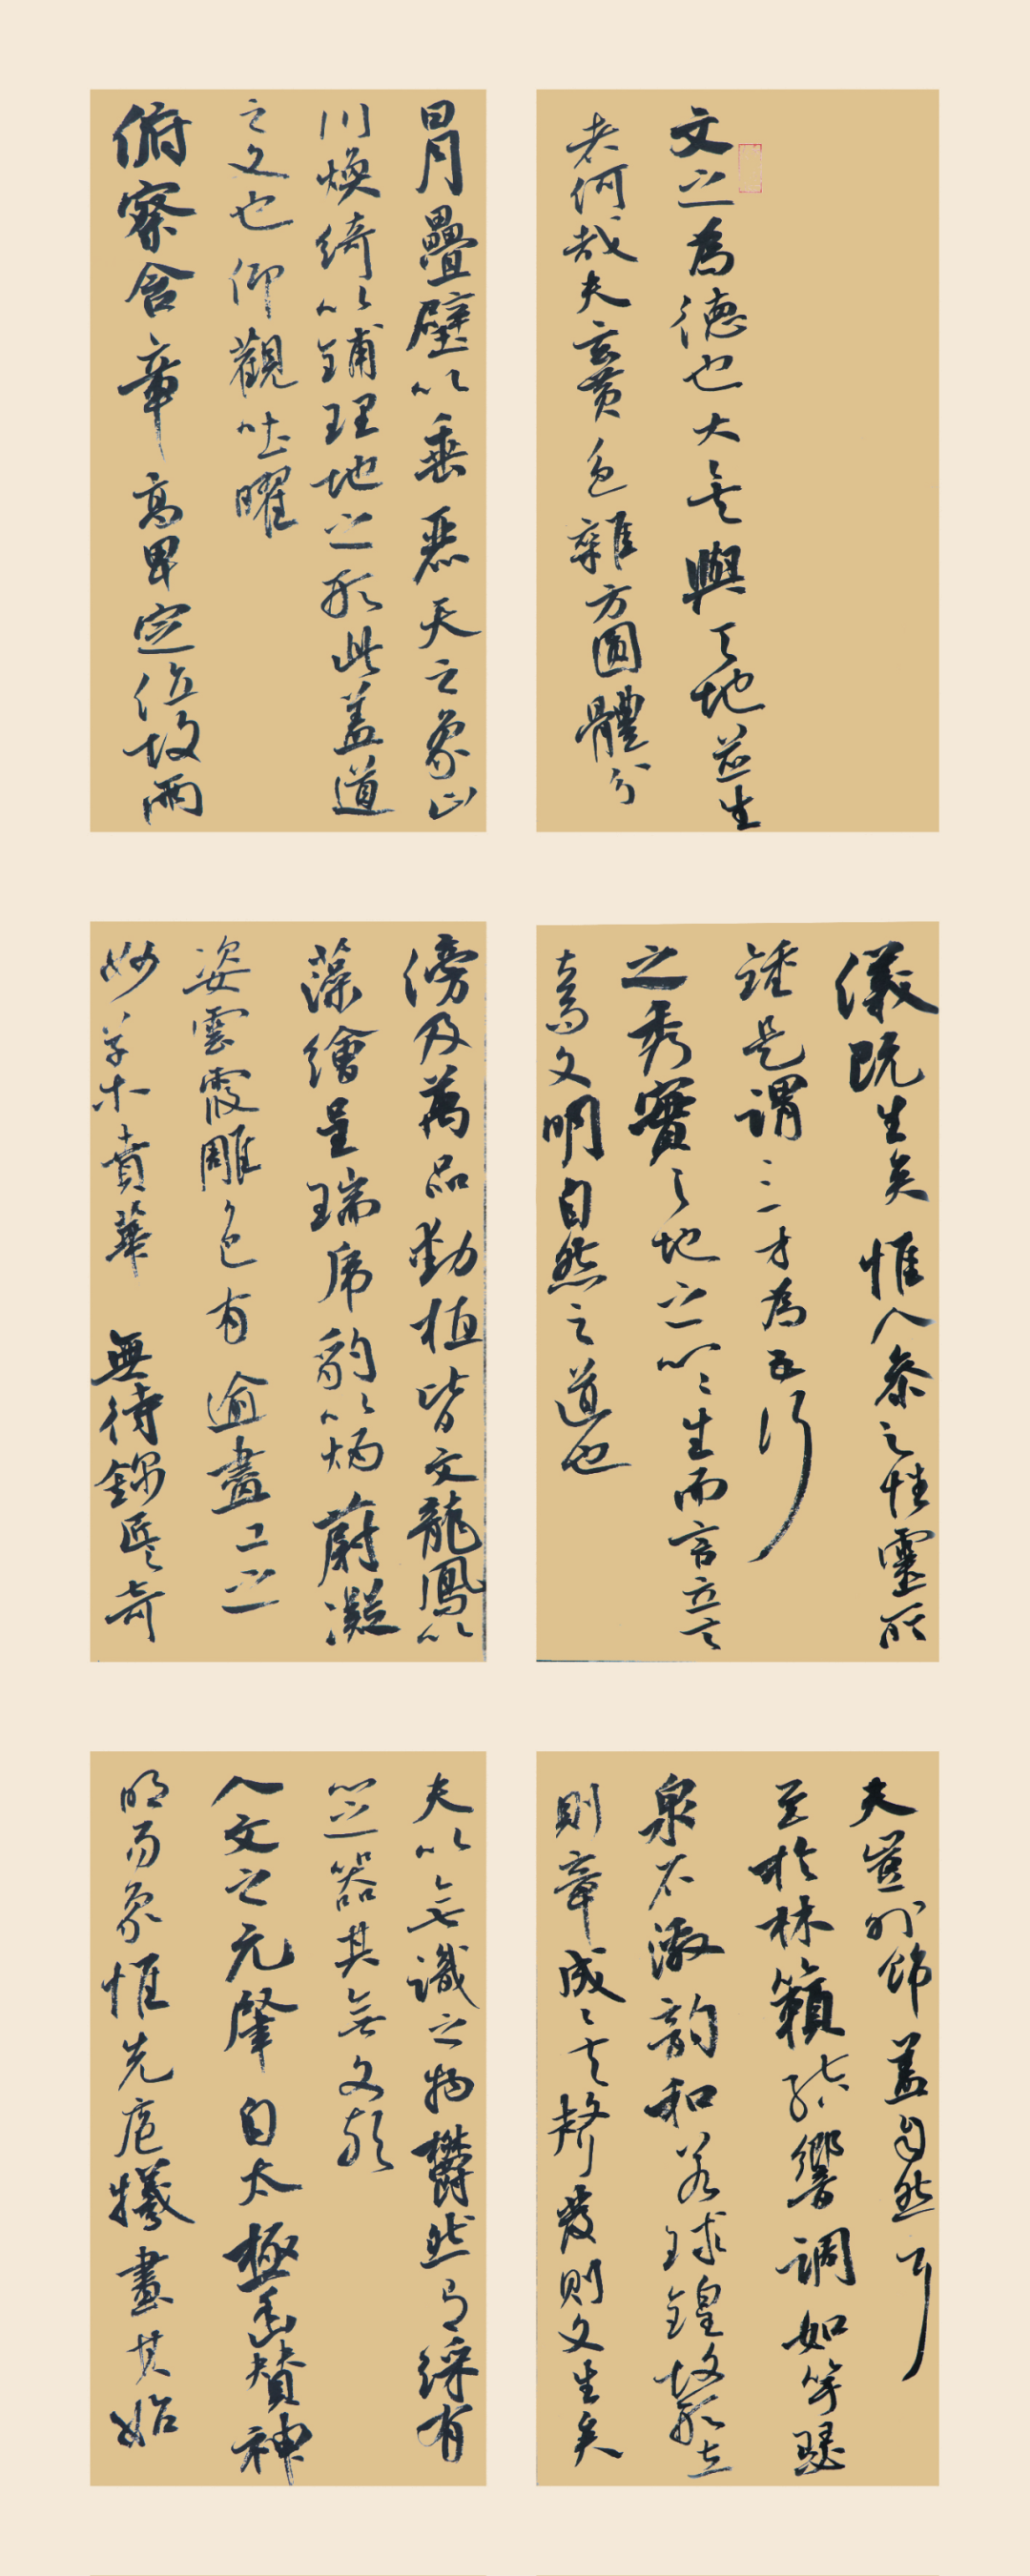 文之為德也大矣與天地並生
者何哉夫玄黃色雜方圓體分
日月疊璧以垂麗天之象山
川煥綺以鋪理地之形此蓋道
之文也仰觀吐曜
俯察含章高卑定位故兩
儀既生矣惟人參之性靈所
鍾是謂三才為五行
之秀實天地之心心生而言立言
立而文明自然之道也
傍及萬品動植皆文龍鳳以
藻繪呈瑞虎豹以炳蔚凝
姿雲霞雕色有逾畫工之
妙草木賁華無待錦匠之奇
夫豈外飾蓋自然耳
至於林籟結響調如竽瑟
泉石激韻和若球鍠故形立
則章成之矣聲發則文生矣
夫以無識之物鬱然有綵有
心之器其無文歟
人文之元肇自太極幽贊神
明易象惟先庖犧畫其始